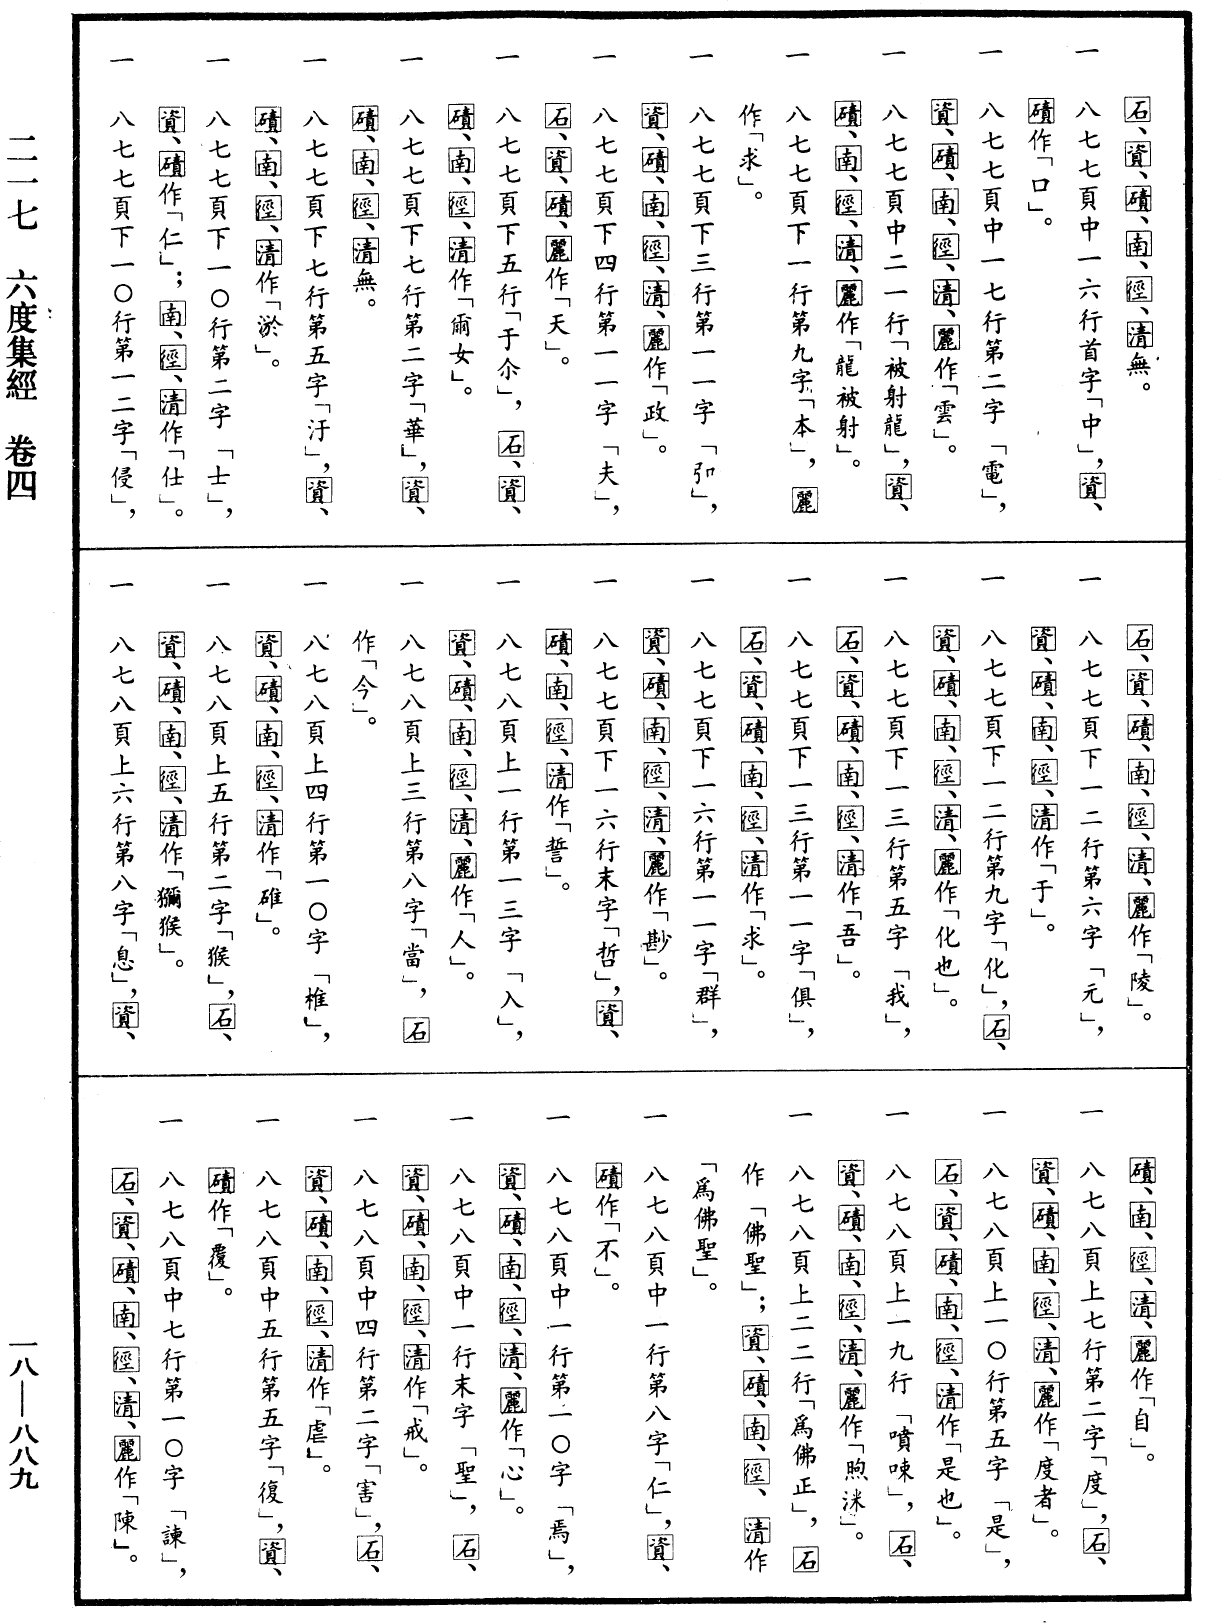 石、資、磧、南、徑、清無。
一 八七七頁中一六行首字「中」，資、
磧作「口」。
一 八七七頁中一七行第二字「電」，
資、磧、南、徑、清、麗作「雲」。
一 八七七頁中二一行「被射龍」，資、
磧、南、徑、清、麗作「龍被射」。
一 八七七頁下一行第九字「本」，麗
作「求」。
一 八七七頁下三行第一一字「引」，
資、磧、南、徑、清、麗作「政」。
一 八七七頁下四行第一一字「夫」，
石、資、磧、麗作「天」。
一 八七七頁下五行「于尒」，石、資、
磧、南、徑、清作「爾女」。
一 八七七頁下七行第二字「華」，資、
磧、南、徑、清無。
一 八七七頁下七行第五字「汙」，資、
磧、南、徑、清作「淤」。
一 八七七頁下一〇行第二字「士」，
資、磧作「仁」；南、徑、清作「仕」。
一 八七七頁下一〇行第一二字「侵」，
石、資、磧、南、徑、清、麗作「陵」。
一 八七七頁下一二行第六字「元」，
資、磧、南、徑、清作「于」。
一 八七七頁下一二行第九字「化」，石、
資、磧、南、徑、清、麗作「化也」。
一 八七七頁下一三行第五字「我」，
石、資、磧、南、徑、清作「吾」。
一 八七七頁下一三行第一一字「俱」，
石、資、磧、南、徑、清作「求」。
一 八七七頁下一六行第一一字「群」，
資、磧、南、徑、清、麗作「尠」。
一 八七七頁下一六行末字「哲」，資、
磧、南、徑、清作「誓」。
一 八七八頁上一行第一三字「入」，
資、磧、南、徑、清、麗作「人」。
一 八七八頁上三行第八字「當」，石
作「今」。
一 八七八頁上四行第一〇字「椎」，
資、磧、南、徑、清作「碓」。
一 八七八頁上五行第二字「猴」，石、
資、磧、南、徑、清作「獼猴」。
一 八七八頁上六行第八字「息」，資、
磧、南、徑、清、麗作「自」。
一 八七八頁上七行第二字「度」，石、
資、磧、南、徑、清、麗作「度者」。
一 八七八頁上一〇行第五字「是」，
石、資、磧、南、徑、清作「是也」。
一 八七八頁上一九行「噴唻」，石、
資、磧、南、徑、清、麗作「煦沬」。
一 八七八頁上二二行「為佛正」，石
作「佛聖」；資、磧、南、徑、清作
「為佛聖」。
一 八七八頁中一行第八字「仁」，資、
磧作「不」。
一 八七八頁中一行第一〇字「焉」，
資、磧、南、徑、清、麗作「心」。
一 八七八頁中一行末字「聖」，石、
資、磧、南、徑、清作「戒」。
一 八七八頁中四行第二字「害」，石、
資、磧、南、徑、清作「虐」。
一 八七八頁中五行第五字「復」，資、
磧作「覆」。
一 八七八頁中七行第一〇字「諫」，
石、資、磧、南、徑、清、麗作「陳」。
二一一七 六度集經 卷四
一八—八八九